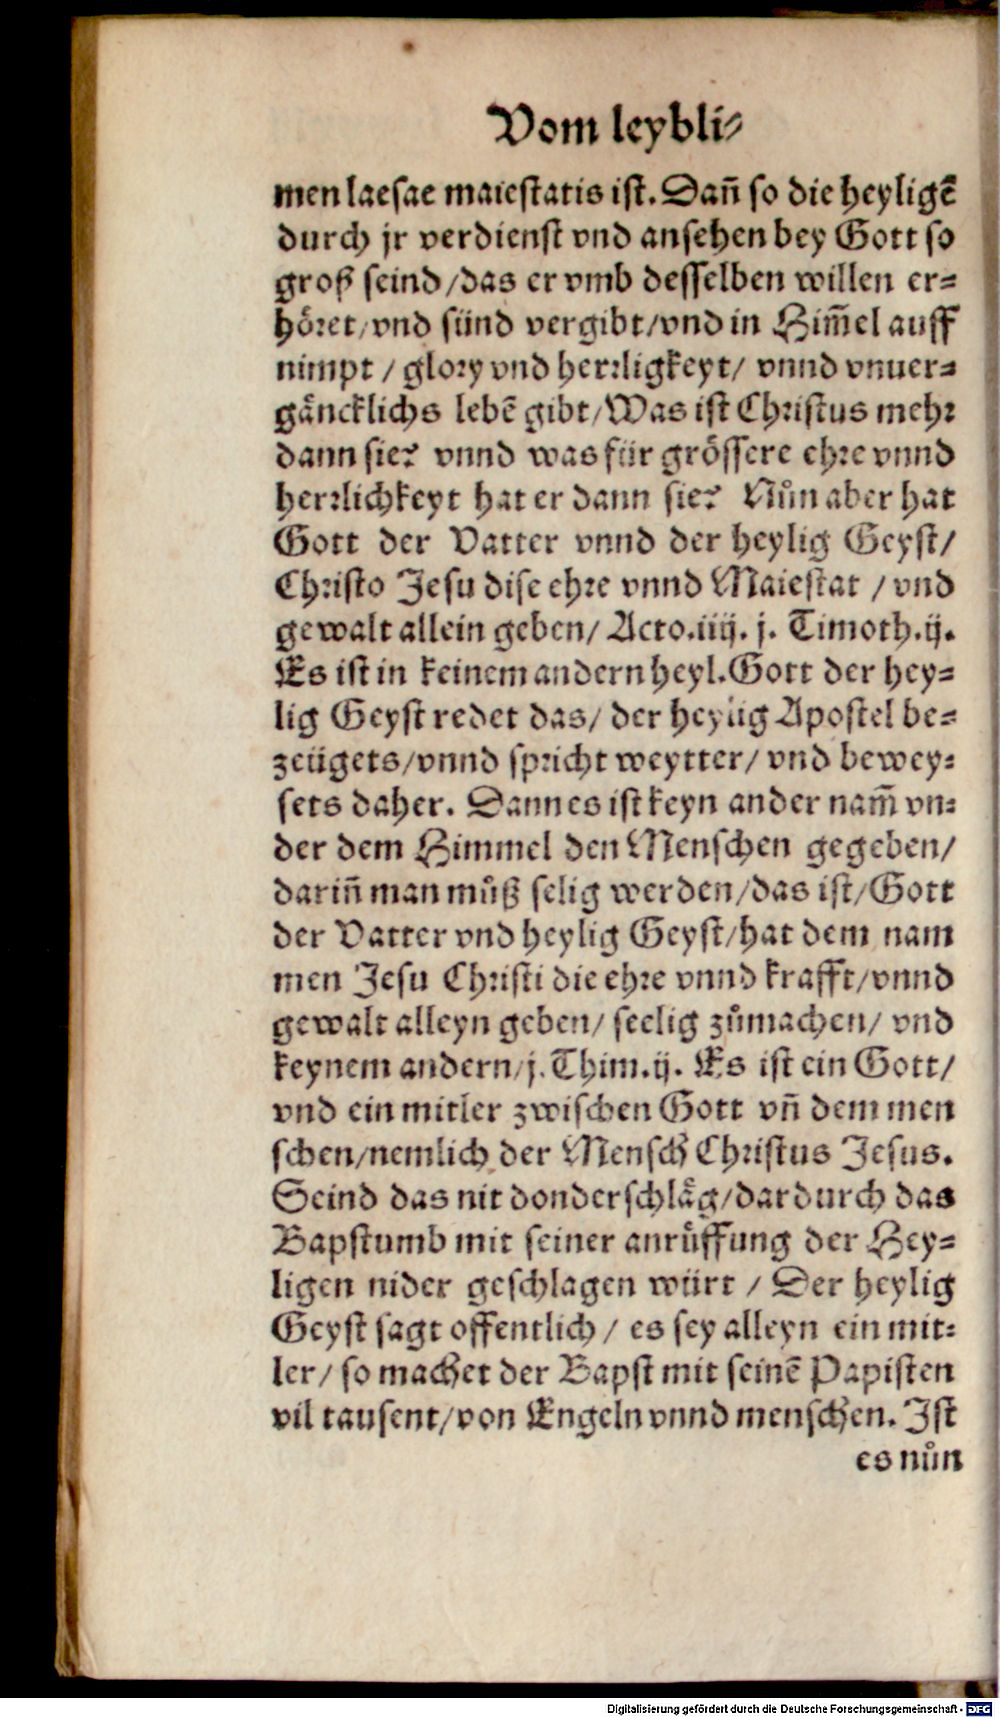 Vom leybli⸗
men laesae maiestatis ist. Dañ so die heyligẽ
durch jr verdienst vnd ansehen bey Gott so
groß seind/das er vmb desselben willen er⸗
höret/vnd sünd vergibt/vnd in Him̃el auff
nimpt / glory vnd herrligkeyt/ vnnd vnuer⸗
gäncklichs lebẽ gibt/Was ist Christus mehr
dann sie? vnnd was für grössere ehre vnnd
herrlichkeyt hat er dann sie? Nůn aber hat
Gott der Vatter vnnd der heylig Geyst/
Christo Jesu dise ehre vnnd Maiestat / vnd
gewalt allein geben/ Acto.iiij. j. Timoth.ij.
Es ist in keinem andern heyl. Gott der hey⸗
lig Geyst redet das/ der heylig Apostel be⸗
zeüget s/vnnd spricht weytter/ vnd bewey⸗
sets daher. Dann es ist keyn ander nam̃ vn⸗
der dem Himmel den Menschen gegeben/
dariñ man můß selig werden/das ist/Gott
der Vatter vnd heylig Geyst/hat dem nam
men Jesu Christi die ehre vnnd krafft/vnnd
gewalt alleyn geben/ seelig zůmachen/ vnd
keynem andern/j. Thim.ij. Es ist ein Gott/
vnd ein mitler zwischen Gott vñ dem men
schen/nemlich der Mensch Christus Jesus.
Seind das nit donderschläg/dardurch das
Bapstumb mit seiner anrůffung der Hey⸗
ligen nider geschlagen würt / Der heylig
Geyst sagt offentlich/ es sey alleyn ein mit⸗
ler/ so machet der Bapst mit seinẽ Papisten
vil tausent/von Engeln vnnd menschen. Ist
es nůn
Digitalisierung gefördert durch die Deutsche Forschungsgemeinschaft - DFG